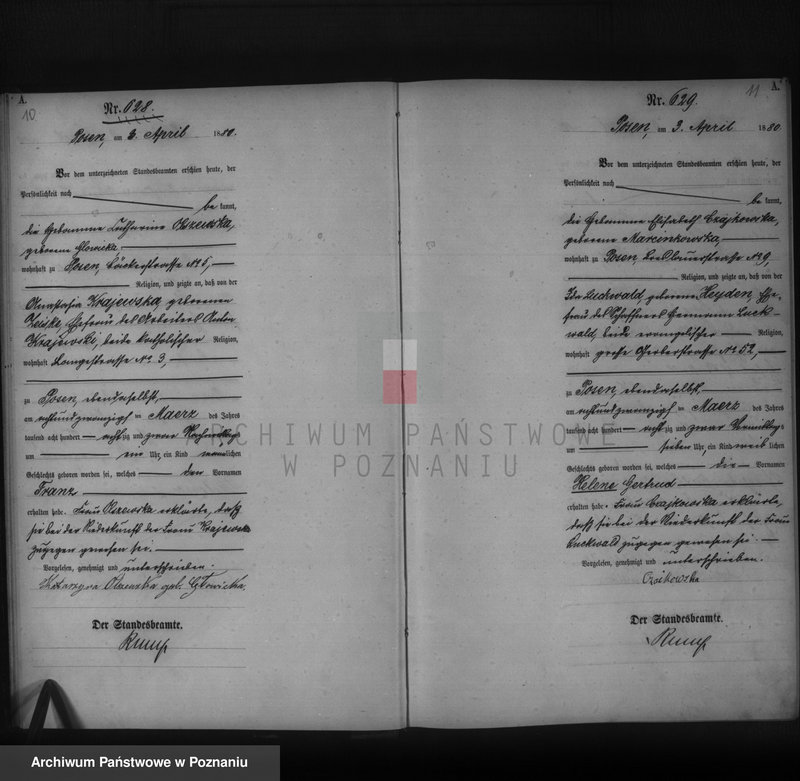 A.
10
Nr. 628.
Posen, am 3. April 1880.
Vor dem unterzeichneten Standesbeamten erschien heute, der
Persönlichkeit nach
be kannt,
die Hebamme Katharina Olszewska,
geborene Glowicka
wohnhaft zu Posen, Bäckerstrasse No 5,
Religion, und zeigte an, daß von der
Anastasia Krajewska geborenen
Ehefrau des Arbeiters Anton
Krajewski, beide katholischer Religion,
wohnhaft Langestrasse No 3,
zu Posen, ebendaselbst,
am achtundzwanzigsten Maerz des Jahres
tausend acht hundert achtzig und zwar Nachmittags
um ein Uhr, ein Kind männlichen
Geschlechts geboren worden sei, welches den Vornamen
Franz
erhalten habe. Frau Olszewska erklärte, daß
sie bei der Niederkunft der Frau Krajewska
zugegen gewesen sei.
Vorgelesen, genehmigt und unterschrieben.
Katarzyna Olszewska geb. Głowicka.
Der Standesbeamte.
11
A.
Nr. 629.
Posen, am 3. April 1880
Vor dem unterzeichneten Standesbeamten erschien heute, der
Persönlichkeit nach
be kannt,
die Hebamme Elisabeth Czajkowska,
geborene Marcinkowska,
wohnhaft zu Posen, Breslauerstraße No 9,
Religion, und zeigte an, daß von der
Ida Luckwald, geborenen Heyden, Ehe-
frau des Schaffners Hermann Luck-
wald, beide evangelischer Religion,
wohnhaft große Gerberstraße No 52,
zu Posen, ebendaselbst,
am achtundzwanzigsten Maerz des Jahres
tausend acht hundert achtzig und zwar Vormittags
um sieben Uhr, ein Kind weiblichen
Geschlechts geboren worden sei, welches die Vornamen
Helene Gertrud
erhalten habe. Frau Czajkowska erklärte,
daß sie bei der Niederkunft der Frau
Luckwald zugegen gewesen sei.
Vorgelesen, genehmigt und unterschrieben.
Czaikowska
Der Standesbeamte.
ARCHIWUM PAŃSTWOWE
W POZNANIU
Archiwum Państwowe w Poznaniu